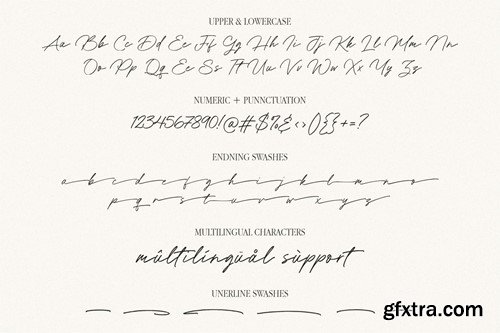 UPPER & LOWERCASE
Aa Bb Cc Dd Ee Ff Gg Hh Ii Jj Kk Ll Mm Nn
Oo Pp Qq Ee Ss Tt Uu Vv Ww Xx Yy Zz
NUMERIC + PUNNCTUATION
1234567890!@#$%&<>(){}+=?
ENDNING SWASHES
a b c d e f g h i j k l m n o
p q r s t u v w x y z
MULTILINGUAL CHARACTERS
múltilíngüål sùpport
UNERLINE SWASHES
gfxtra.com